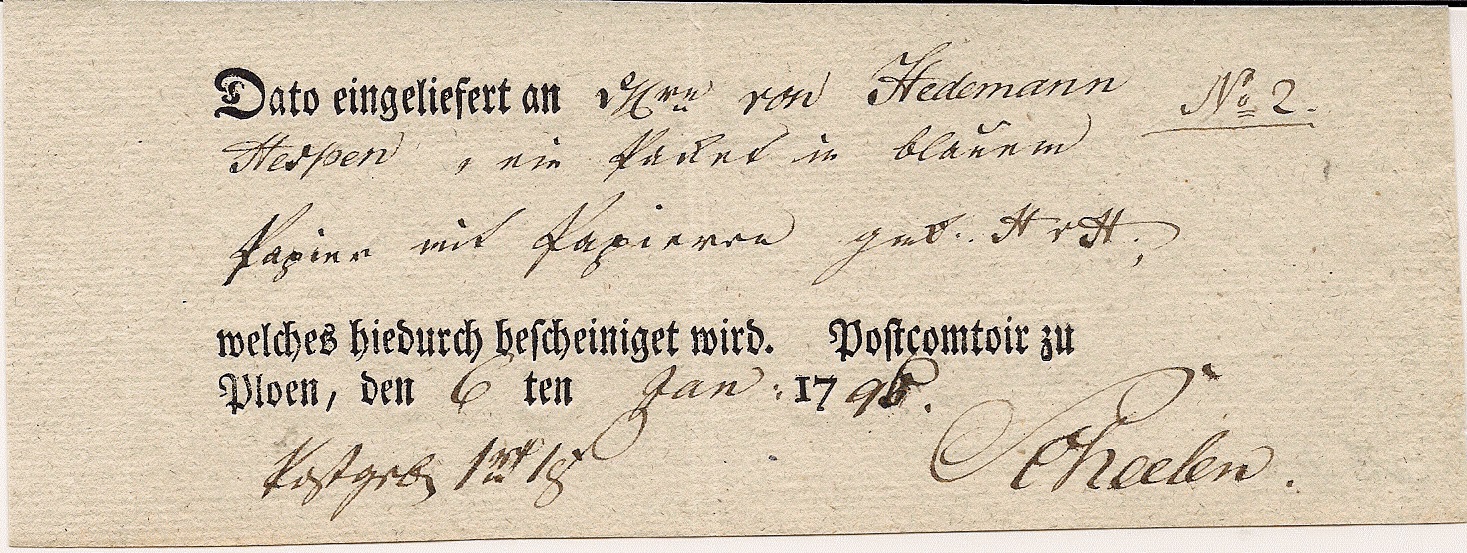 Dato eingeliefert an Hrn von Hedemann No 2.
Hespen, ein Packet in blauem
Papier mit Papieren gez. H v H.,
welches hiedurch bescheiniget wird. Postcomtoir zu
Ploen, den 6 ten Jan: 1795.
Postgeb Scheelen.